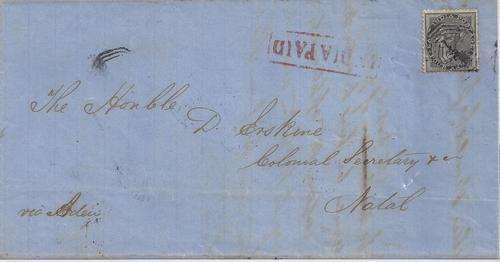 INDIA PAID
The Honble.
D. Erskine
Colonial Secretary &c
Natal
via Aden